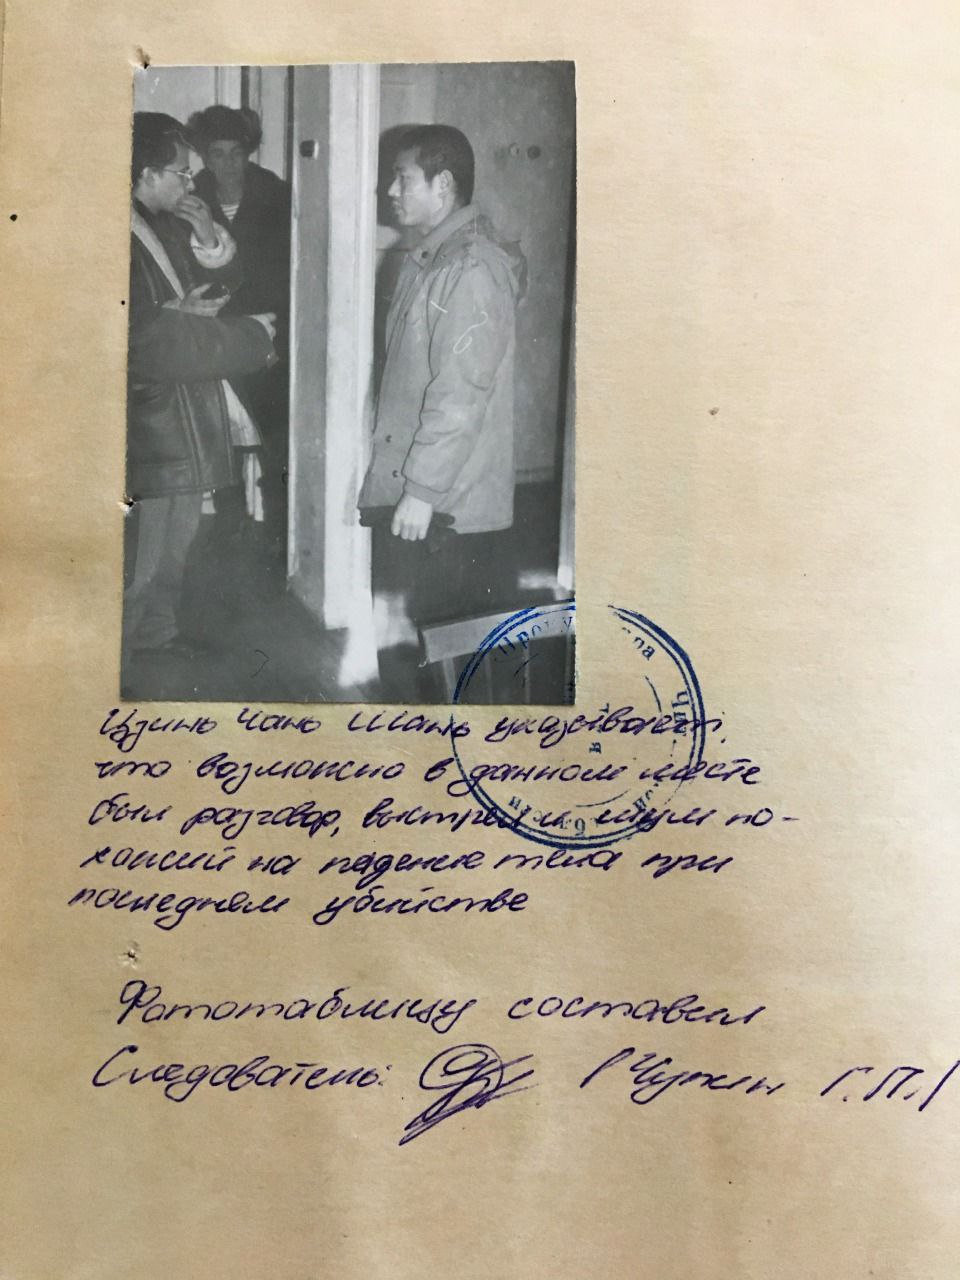 Цзинь Чань Шань указывает,
что возможно в данном месте
был разговор, выстрел и шум по-
хожий на падение тела при
последнем убийстве
Фототаблицу составил
Следователь: /Чужин Г.П./
Прокуратура